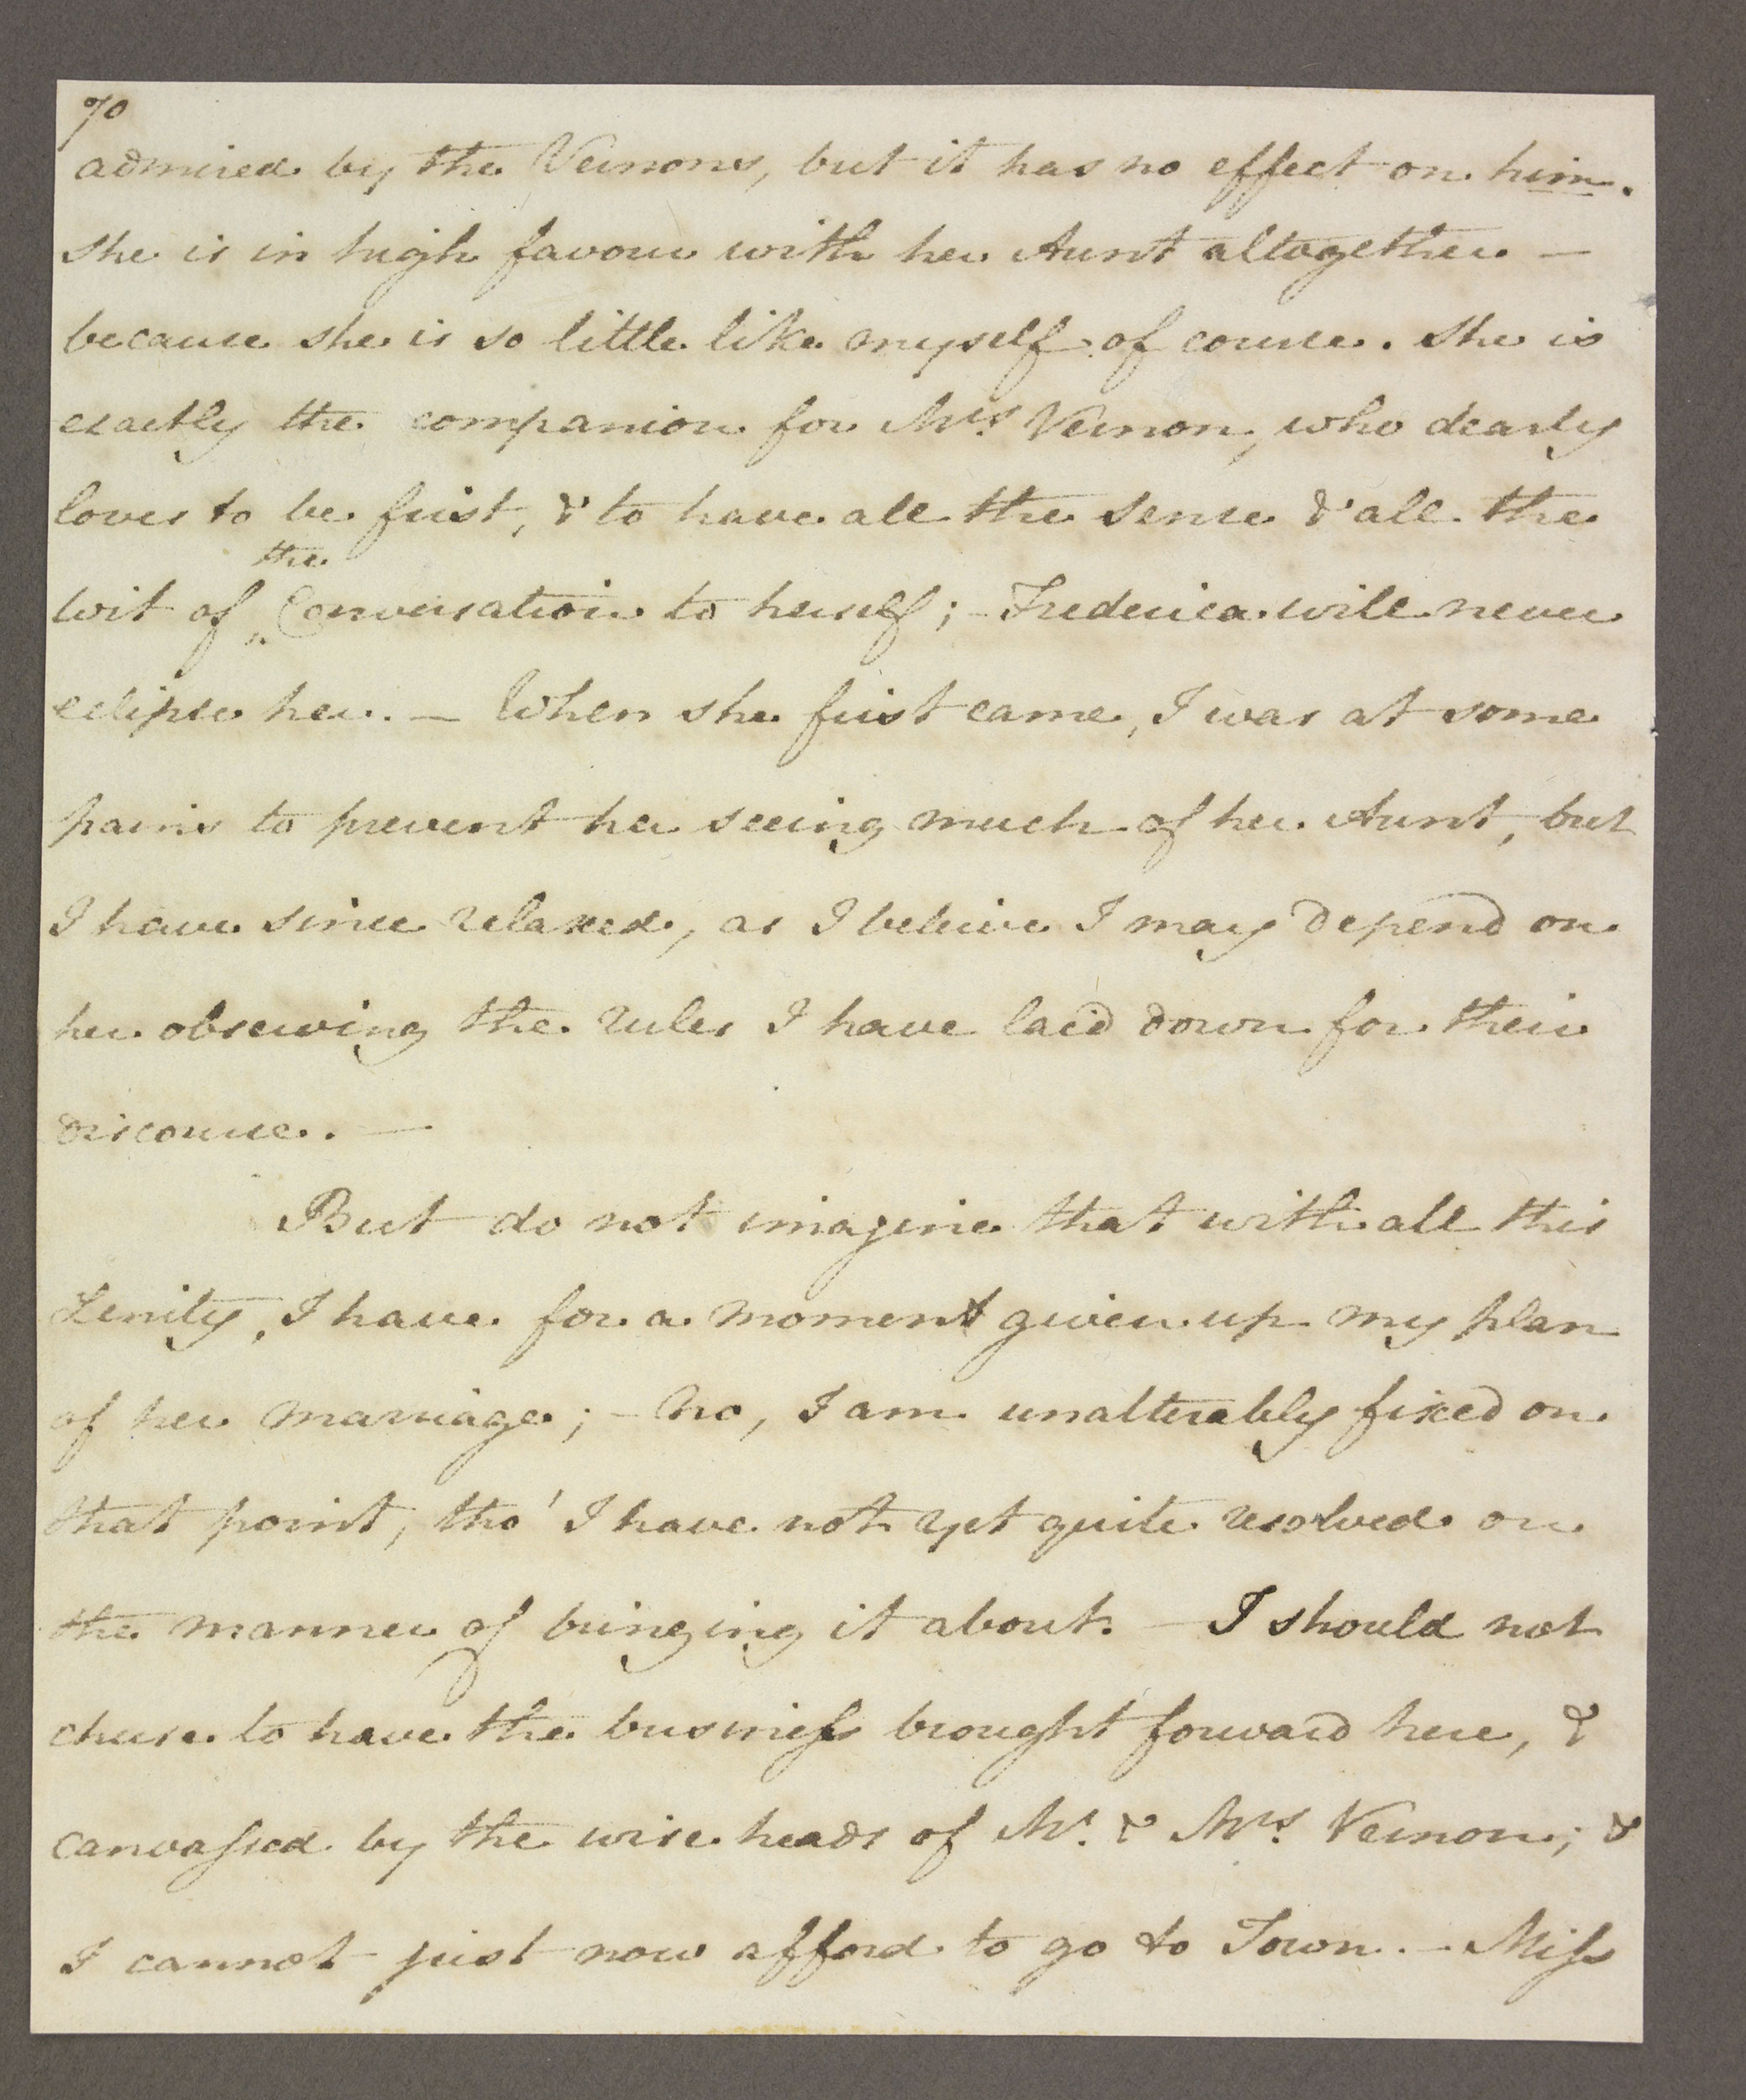 70
admired by the Vernons, but it has no effect on him.
She is in high favour with her Aunt altogether —
because she is so little like myself of course. She is
exactly the companion for Mrs Vernon, who dearly
loves to be first, & to have all the sense & all the
the
wit of Conversation to herself; – Frederica will never
eclipse her. — When she first came, I was at some
pains to prevent her seeing much of her Aunt, but
I have since relaxed, as I beleive I may depend on
her observing the rules I have laid down for their
discourse. —
But do not imagine that with all this
Lenity, I have for a moment given up my plan
of her marriage; – No, I am unalterably fixed on
that point, tho' I have not yet quite resolved on
the manner of bringing it about. – I should not
chuse to have the busineſs brought forward here, &
canvaſsed by the wise heads of Mr. & Mrs. Vernon; &
I cannot just now afford to go to Town. – Miſs